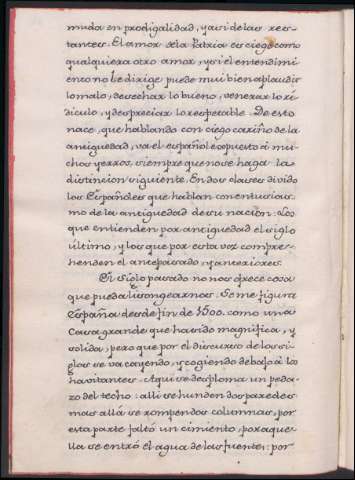 muda en prodigalidad, y asi de las res-
tantes. El amor de la Patria es ciego como
qualquiera otro amor, y si el entendimi-
ento no le dirige puede mui bien aplaudir
lo malo, desechar lo bueno, venerar lo ri-
diculo, y despreciar lo respetable. De esto
nace, que hablando con ciego cariño de la
antiguedad, va el español expuesto à mu-
chos yerros, siempre que no se haga la
distincion siguiente. En dos clases divido
los Españoles que hablan con entusias-
mo de la antiguedad de su nacion: Los
que entienden por antiguedad el siglo
ultimo, y los que por esta voz compre-
henden el antepasado, y anteriores.
El siglo pasado no nos ofrece cosa
que pueda lisongearnos. Se me figura
España desde fin de 1500. como una
Casa grande que ha sido magnifica, y
solida, pero que por el discurso de los si-
glos se va cayendo, y cogiendo debajo à los
havitantes. Aqui se desploma un peda-
zo del techo: alli se hunden dos paredes
mas allá se rompen dos columnas, por
esta parte faltó un cimiento, por aque-
lla se entró el agua de las fuentes: por